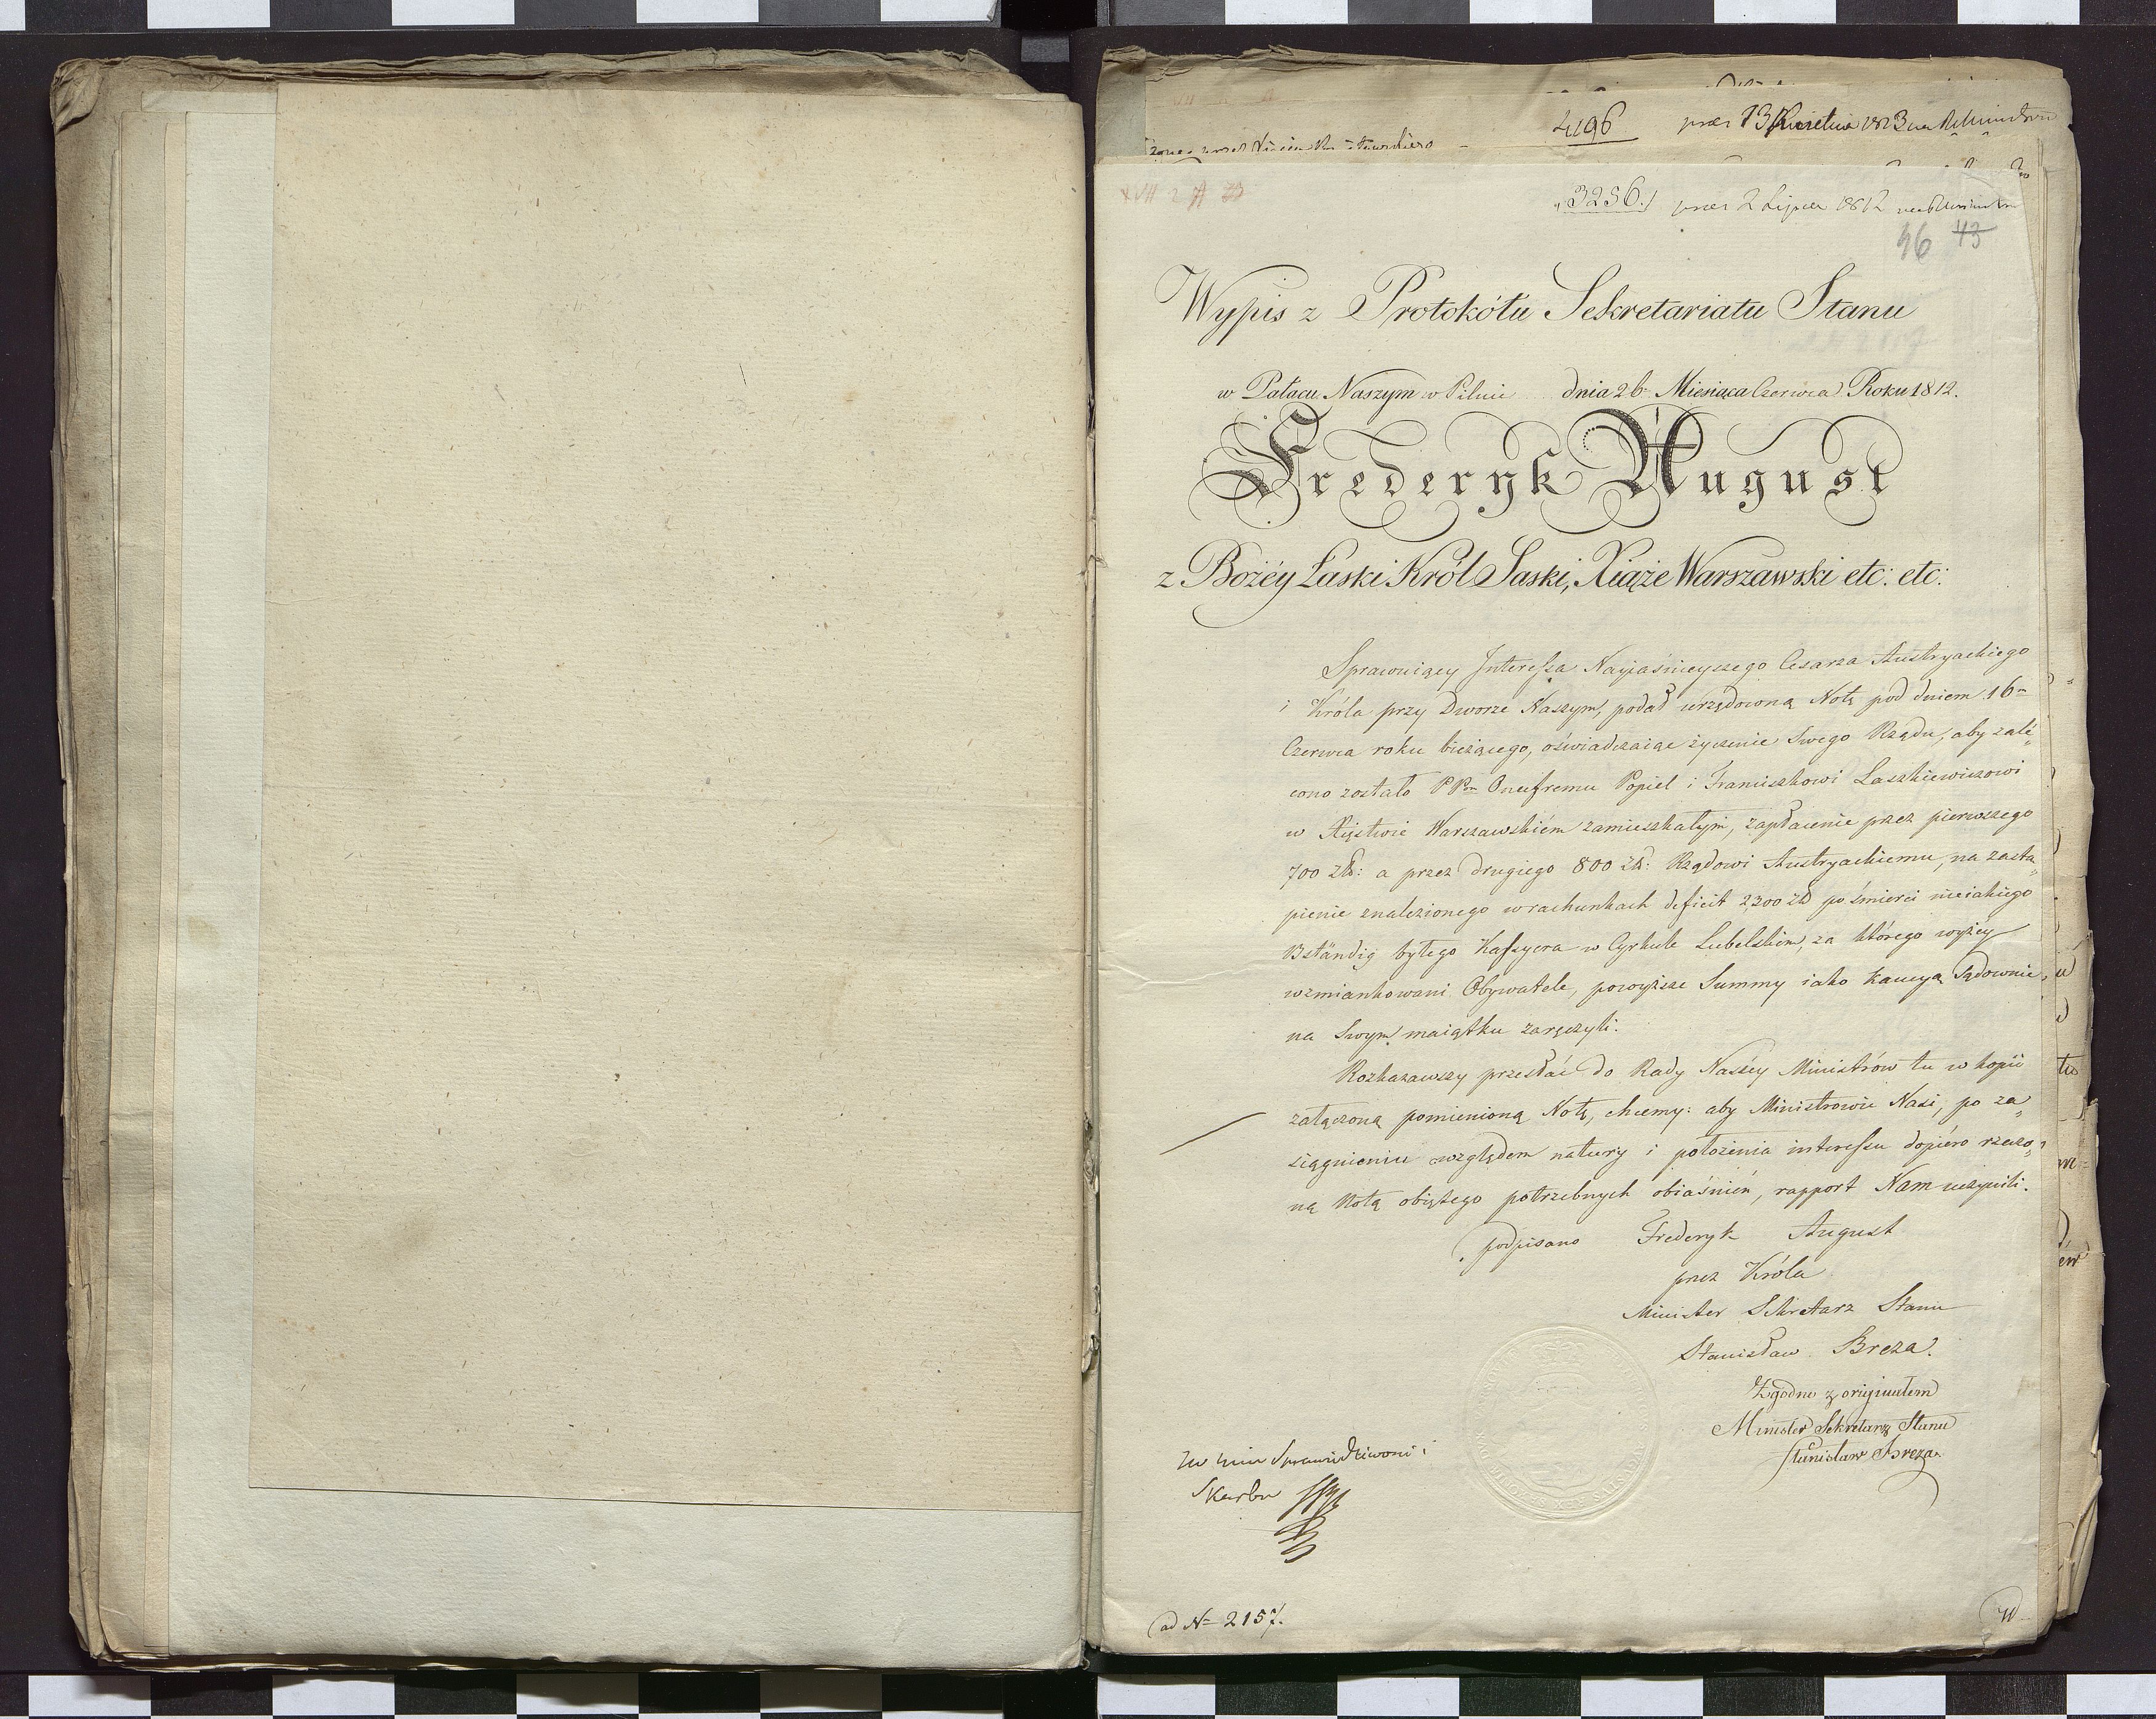 4196 prez 13 Kwietnia 1813
XVII 2 A
3256. prez 2 Lipca 1812
46 43
Wypis z Protokółu Sekretariatu Stanu
w Pałacu Naszym w Pilnic dnia 26 Miesiąca Czerwca Roku 1812.
Frederyk August
z Bożéy Łaski Król Saski, Xiąże Warszawski etc: etc:
Sprawuiący Interessa Nayiaśnieyszego Cesarza Austryackiego
i Króla przy Dworze Naszym, podał urzędową Notę pod dniem 16m
Czerwca roku bieżącego, oświadczaiąc życzenie Swego Rządu, aby zale„
cono zostało PPm Onufremu Popiel i Franciszkowi Laszkiewiczowi
w Xięstwie Warszawskiém zamieszkałym, zapłacenie przez pierwszego
700 zł: a przez drugiego 800 zł: Rządowi Austryackiemu, na zastą„
pienie znalezionego w rachunkach deficit 2300 zł po śmierci nieiakiego
Bständig byłego Kassyera w Cyrkule Lubelskim, za którego wyżéy
wzmiankowani Obywatele, powyższe Summy iako kaucyą Sądownie
na Swym maiątku zaręczyli.
Rozkazawszy przesłać do Rady Naszéy Ministrów tu w kopii
załączoną pomienioną Notę, chcemy: aby Ministrowie Nasi, po za„
siągnieniu względem natury i położenia interessu dopiéro rzeczo„
ną Notą obiętego potrzebnych obiaśnień, rapport Nam uczynili.
podpisano Frederyk August
przez Króla
Minister Sekretarz Stanu
Stanisław Breza.
Zgodno z oryginałem
Minister Sekretarz Stanu
Stanisław Breza.
Sprawiedliwości i
Skarbu
ad No 2157.